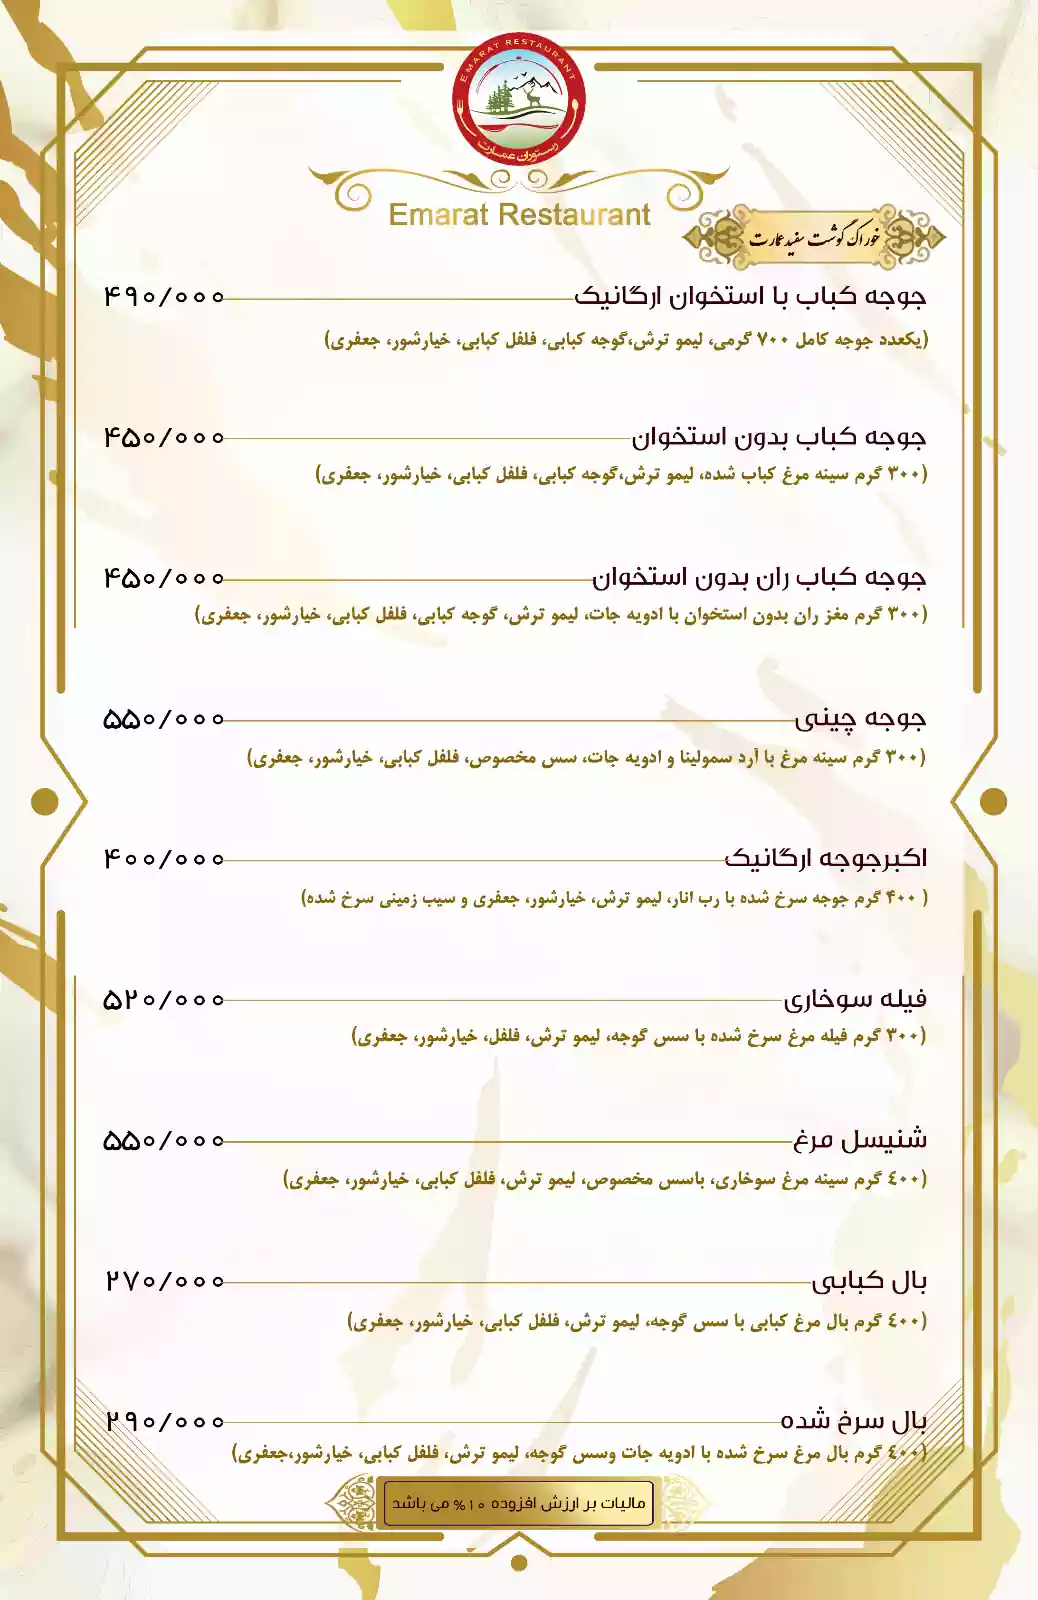 EMARAT RESTAURANT
رستوران عمارت
Emarat Restaurant
خوراک گوشت سفید عمارت
جوجه کباب با استخوان ارگانیک ۴۹۰/۰۰۰
(یکعدد جوجه کامل ۷۰۰ گرمی، لیمو ترش،گوجه کبابی، فلفل کبابی، خیارشور، جعفری)
جوجه کباب بدون استخوان ۴۵۰/۰۰۰
(۳۰۰ گرم سینه مرغ کباب شده، لیمو ترش،گوجه کبابی، فلفل کبابی، خیارشور، جعفری)
جوجه کباب ران بدون استخوان ۴۵۰/۰۰۰
(۳۰۰ گرم مغز ران بدون استخوان با ادویه جات، لیمو ترش، گوجه کبابی، فلفل کبابی، خیارشور، جعفری)
جوجه چینی ۵۵۰/۰۰۰
(۳۰۰ گرم سینه مرغ با آرد سمولینا و ادویه جات، سس مخصوص، فلفل کبابی، خیارشور، جعفری)
اکبرجوجه ارگانیک ۴۰۰/۰۰۰
( ۴۰۰ گرم جوجه سرخ شده با رب انار، لیمو ترش، خیارشور، جعفری و سیب زمینی سرخ شده)
فیله سوخاری ۵۲۰/۰۰۰
(۳۰۰ گرم فیله مرغ سرخ شده با سس گوجه، لیمو ترش، فلفل، خیارشور، جعفری)
شنیسل مرغ ۵۵۰/۰۰۰
(٤۰۰ گرم سینه مرغ سوخاری، باسس مخصوص، لیمو ترش، فلفل کبابی، خیارشور، جعفری)
بال کبابی ۲۷۰/۰۰۰
(٤۰۰ گرم بال مرغ کبابی با سس گوجه، لیمو ترش، فلفل کبابی، خیارشور، جعفری)
بال سرخ شده ۲۹۰/۰۰۰
(٤۰۰ گرم بال مرغ سرخ شده با ادویه جات وسس گوجه، لیمو ترش، فلفل کبابی، خیارشور،جعفری)
مالیات بر ارزش افزوده ۱۰% می باشد